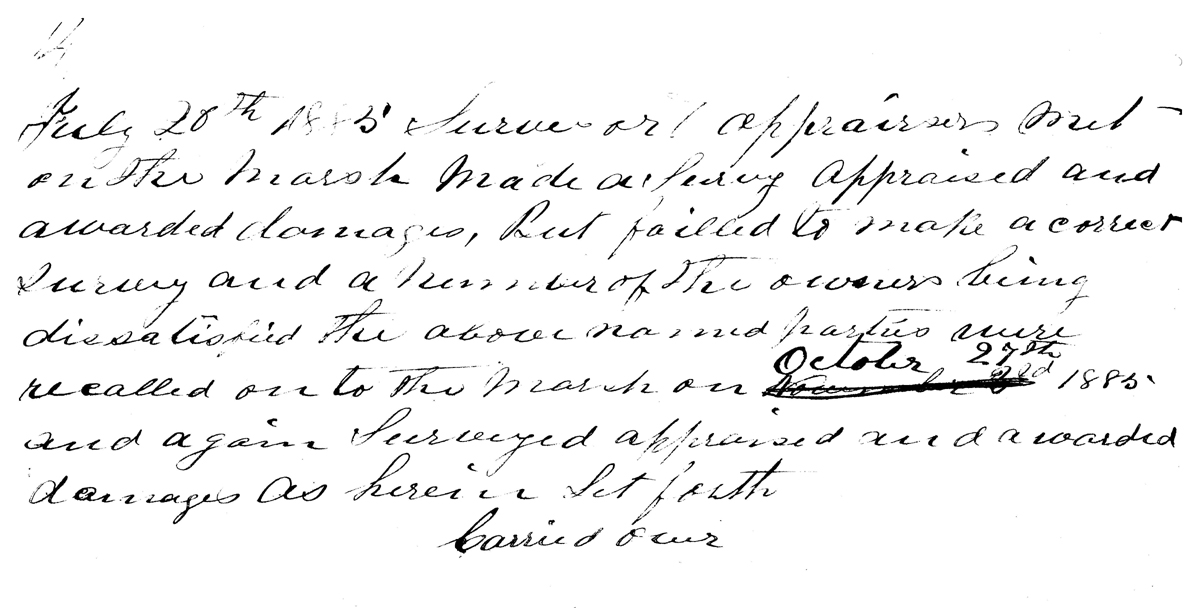 July 28th 1885 Surveyor & appraisers Met
on the Marsh Made a Survey Appraised and
awarded damages, But failled to make a correct
Survey and a Number of the owners being
dissatisfied the above named parties were
October 27th
recalled on to the Marsh on 1885
and again Surveyed appraised and awarded
damages as herein Set forth
Carried over